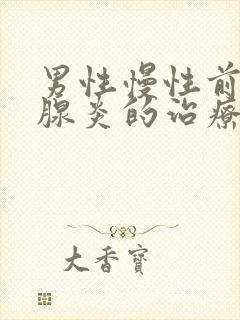 男性慢性前
腺炎的治療
大香寶